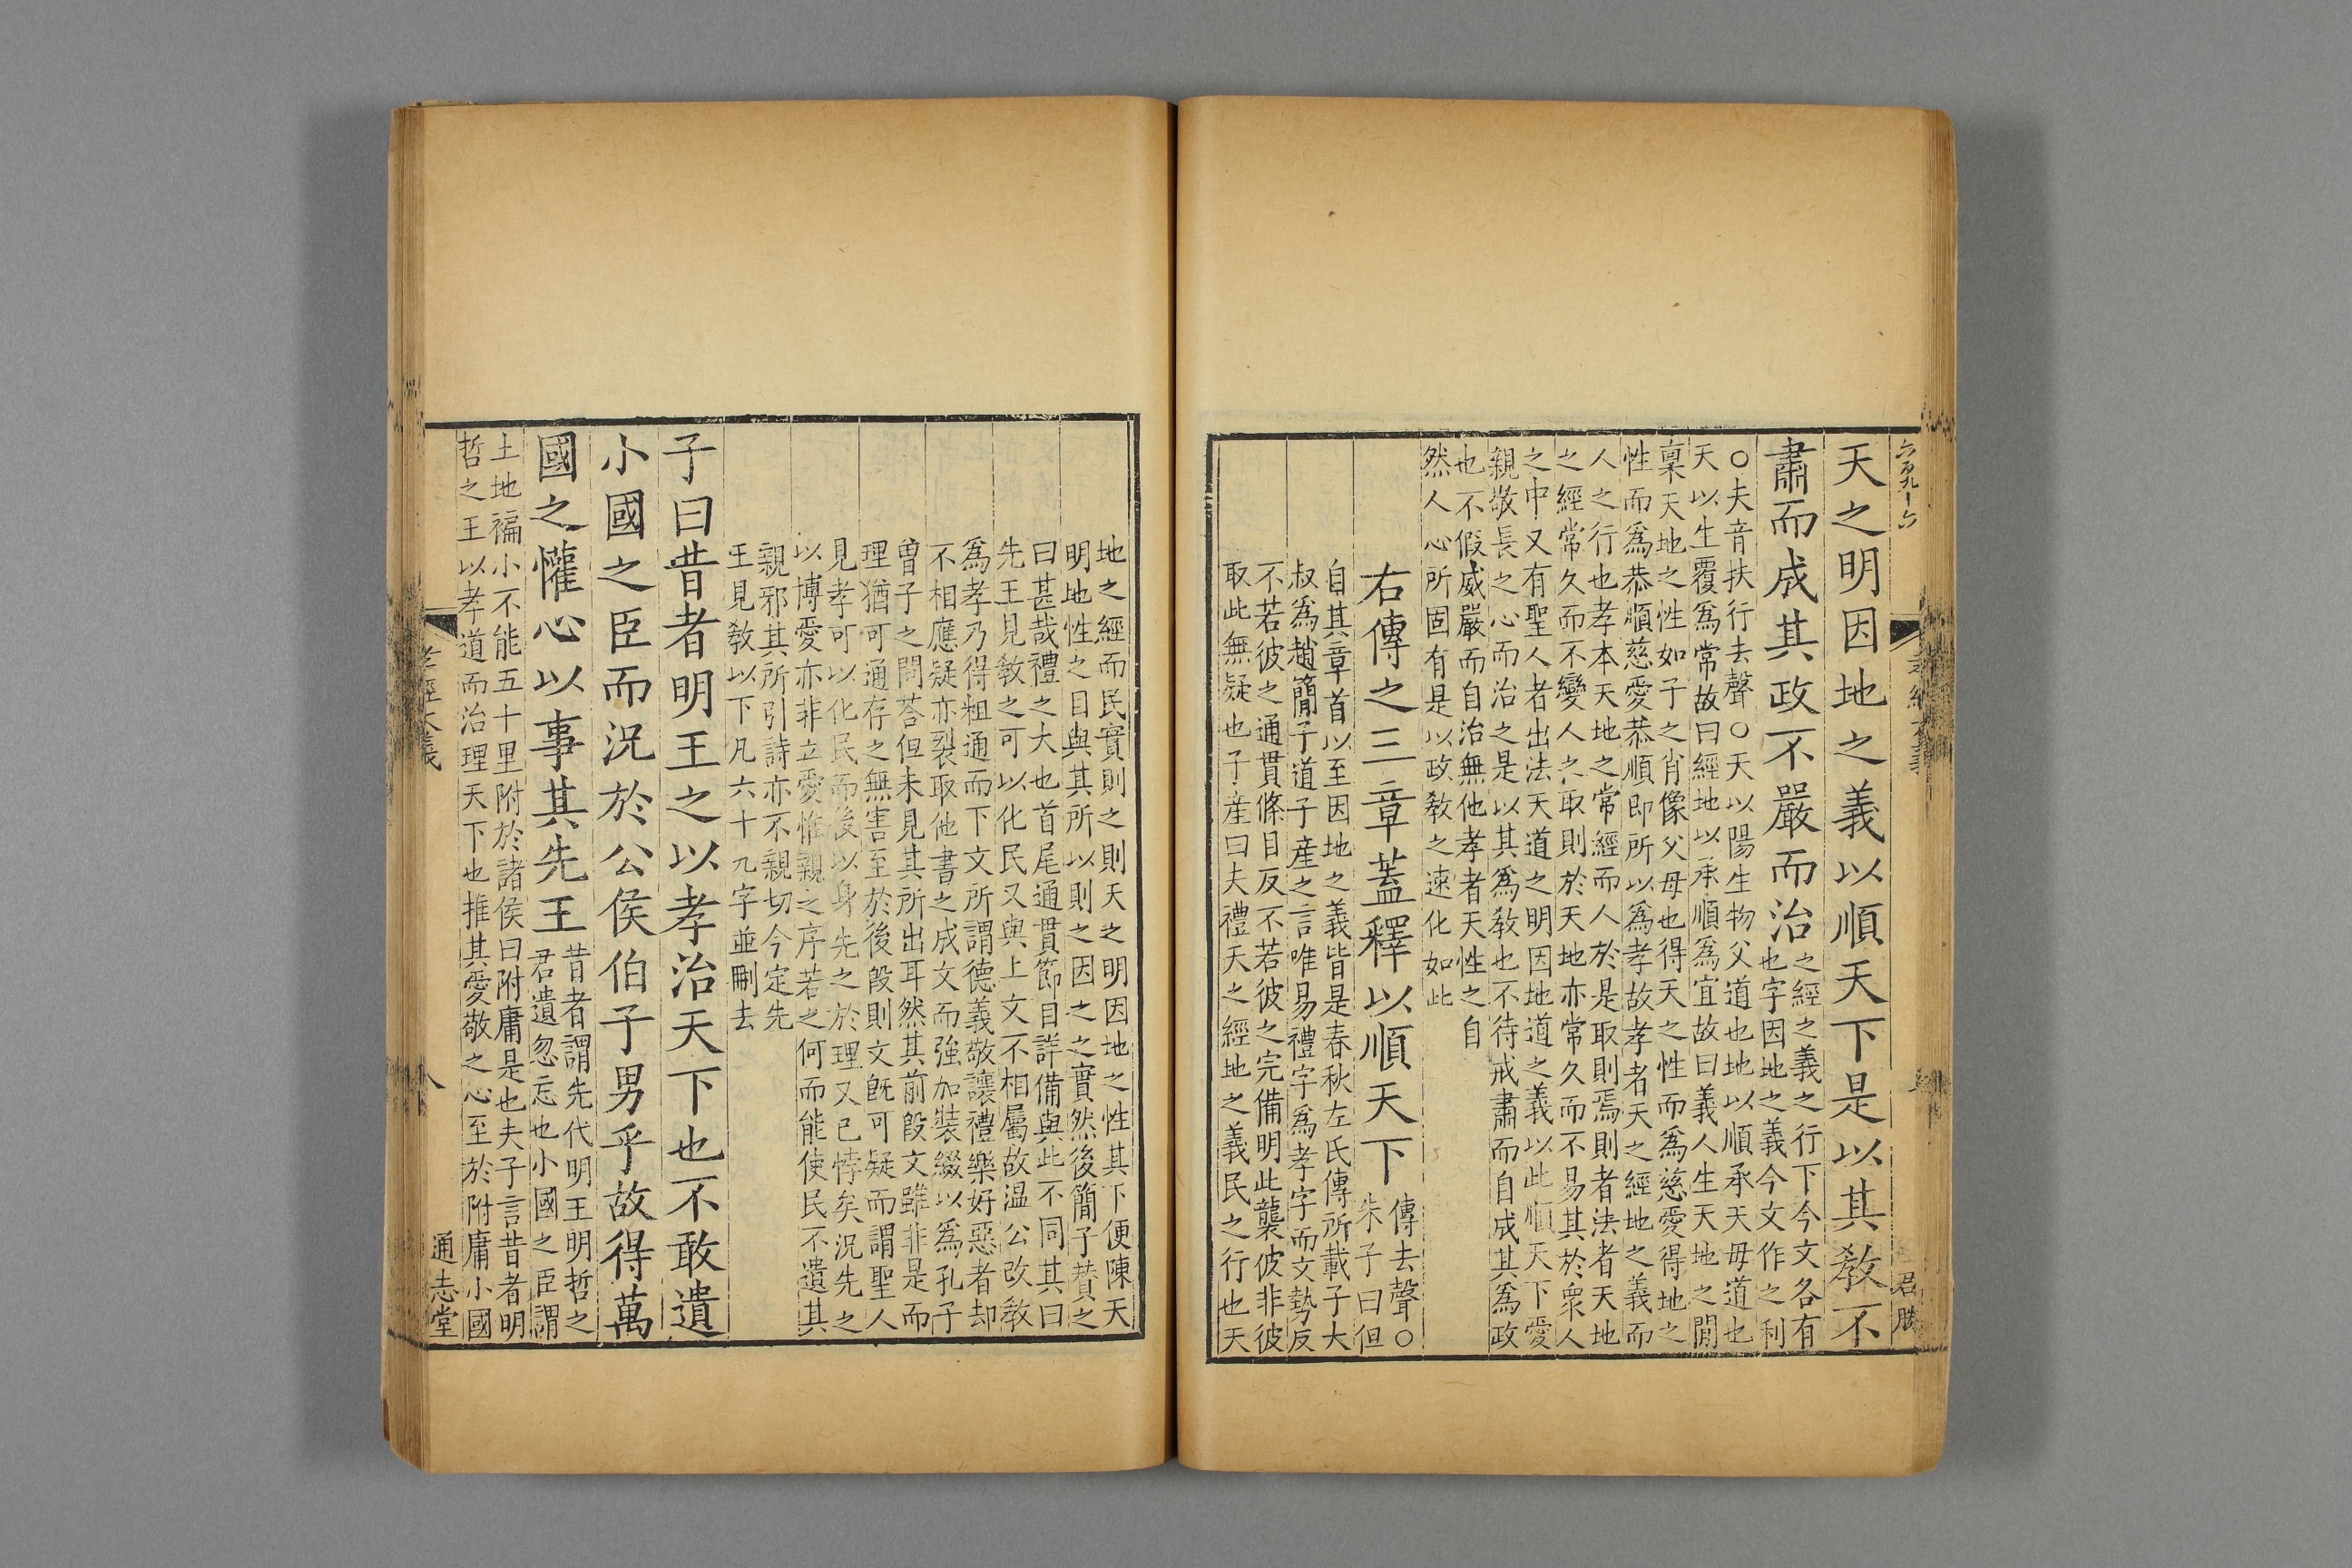 天之明因地之義以順天下是以其敎不
肅而成其政不嚴而治
之經之義之行下今文各有
也字因地之義今文作之利
○夫音扶行去聲○天以陽生物父道也地以順承天毋道也
天以生覆爲常故曰經地以承順爲宜故曰義人生天地之閒
稟天地之性如子之肖像父毋也得天之性而爲慈愛得地之
性而爲恭順慈愛恭順即所以爲孝故孝者天之經地之義而
人之行也孝本天地之常經而人於是取則焉則者法者天地
之經常久而不變人之取則於天地亦常久而不易其於衆人
之中又有聖人者出法天道之明因地道之義以此順天下愛
親敬長之心而治之是以其爲敎也不待戒肅而自成其爲政
也不假威嚴而自治無他孝者天性之自
然人心所固有是以政敎之速化如此
右傳之三章蓋釋以順天下
傳去聲○
朱子曰但
自其章首以至因地之義皆是春秋左氏傳所載子大
叔爲趙簡子道子産之言唯易禮字爲孝字而文勢反
不若彼之通貫條目反不若彼之完備明此襲彼非彼
取此無疑也子産曰夫禮天之經地之義民之行也天
地之經而民實則之則天之明因地之性其下便陳天
明地性之目與其所以則之因之之實然後簡子賛之
曰甚哉禮之大也首尾通貫節目詳備與此不同其曰
先王見敎之可以化民又與上文不相屬故温公改敎
爲孝乃得粗通而下文所謂德義敬讓禮樂好惡者却
不相應疑亦裂取他書之成文而強加裝綴以爲孔子
曾子之問荅但未見其所出耳然其前段文雖非是而
理猶可通存之無害至於後段則文旣可疑而謂聖人
見孝可以化民而後以身先之於理又已悖矣況先之
以博愛亦非立愛惟親之序若之何而能使民不遺其
親邪其所引詩亦不親切今定先
王見敎以下凡六十九字並刪去
子曰昔者明王之以孝治天下也不敢遺
小國之臣而況於公侯伯子男乎故得萬
國之懽心以事其先王
昔者謂先代明王明哲之
君遺忽忘也小國之臣謂
土地褊小不能五十里附於諸侯曰附庸是也夫子言昔者明
哲之王以孝道而治理天下也推其愛敬之心至於附庸小國
孝經大義
八
通志堂